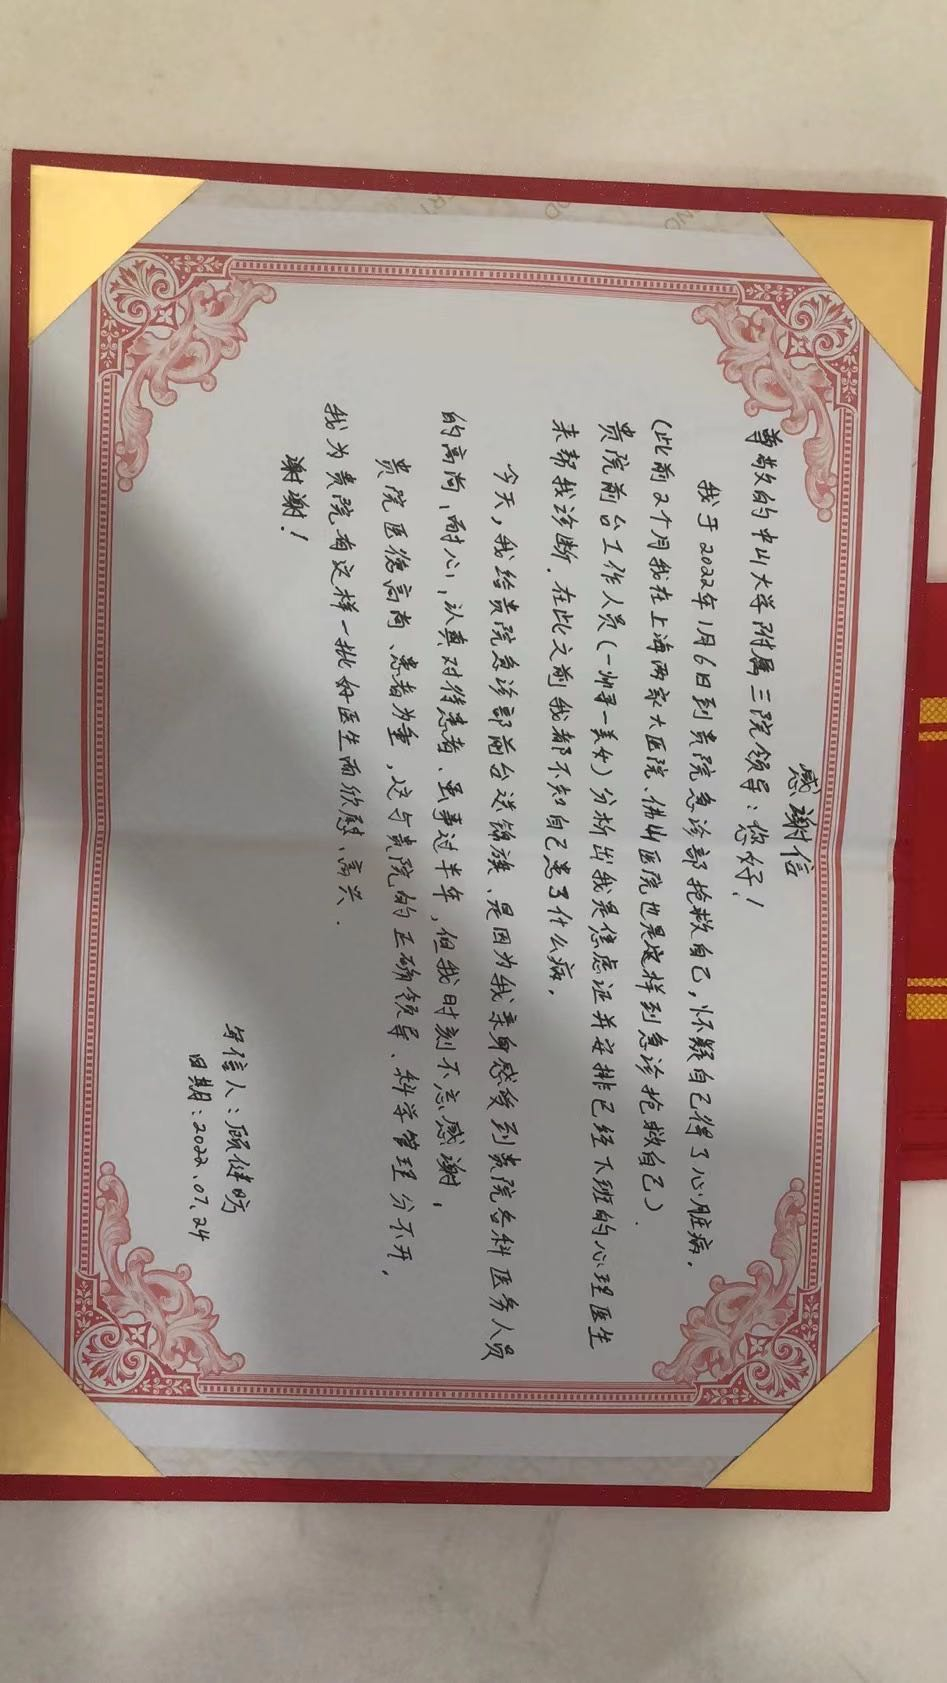 感谢信
尊敬的中山大学附属三院领导：您好！
我于2022年1月6日到贵院急诊部抢救自己，怀疑自己得了心脏病．
（此前2个月我在上海两家大医院、佛山医院也是这样到急诊抢救自己）．
贵院前台工作人员（一帅哥一美女）分析出我是焦虑证并安排已经下班的心理医生
来帮我诊断．在此之前我都不知自己患了什么病．
今天，我给贵院急诊部前台送锦旗、是因为我亲身感受到贵院各科医务人员
的高尚、耐心，认真对待患者、虽事过半年，但我时刻不忘感谢，
贵院医德高尚、患者为重，这与贵院的正确领导、科学管理分不开，
我为贵院有这样一批好医生而欣慰、高兴．
谢谢！
写信人：顾健
日期：2022、07、24